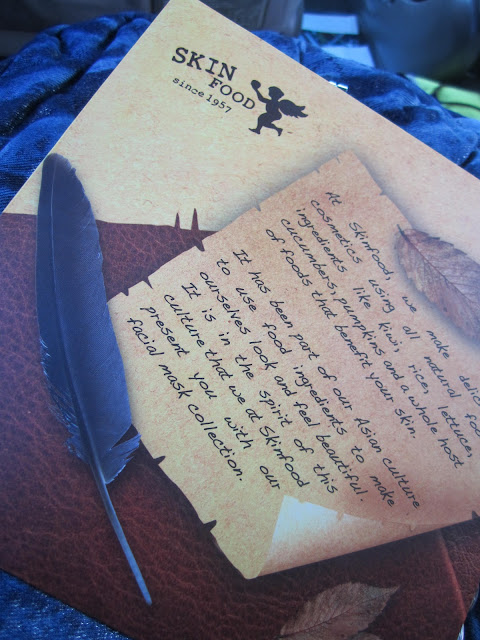 SKIN
FOOD
since 1957
At Skinfood, we make delic
cosmetics using all natural foo
ingredients like kiwi, rice, lettuce,
cucumbers, pumpkins and a whole host
of foods that benefit your skin.
It has been part of our Asian culture
to use food ingredients to make
ourselves look and feel beautiful.
It is in the spirit of this
culture that we at Skinfood
present you with our
facial mask collection.